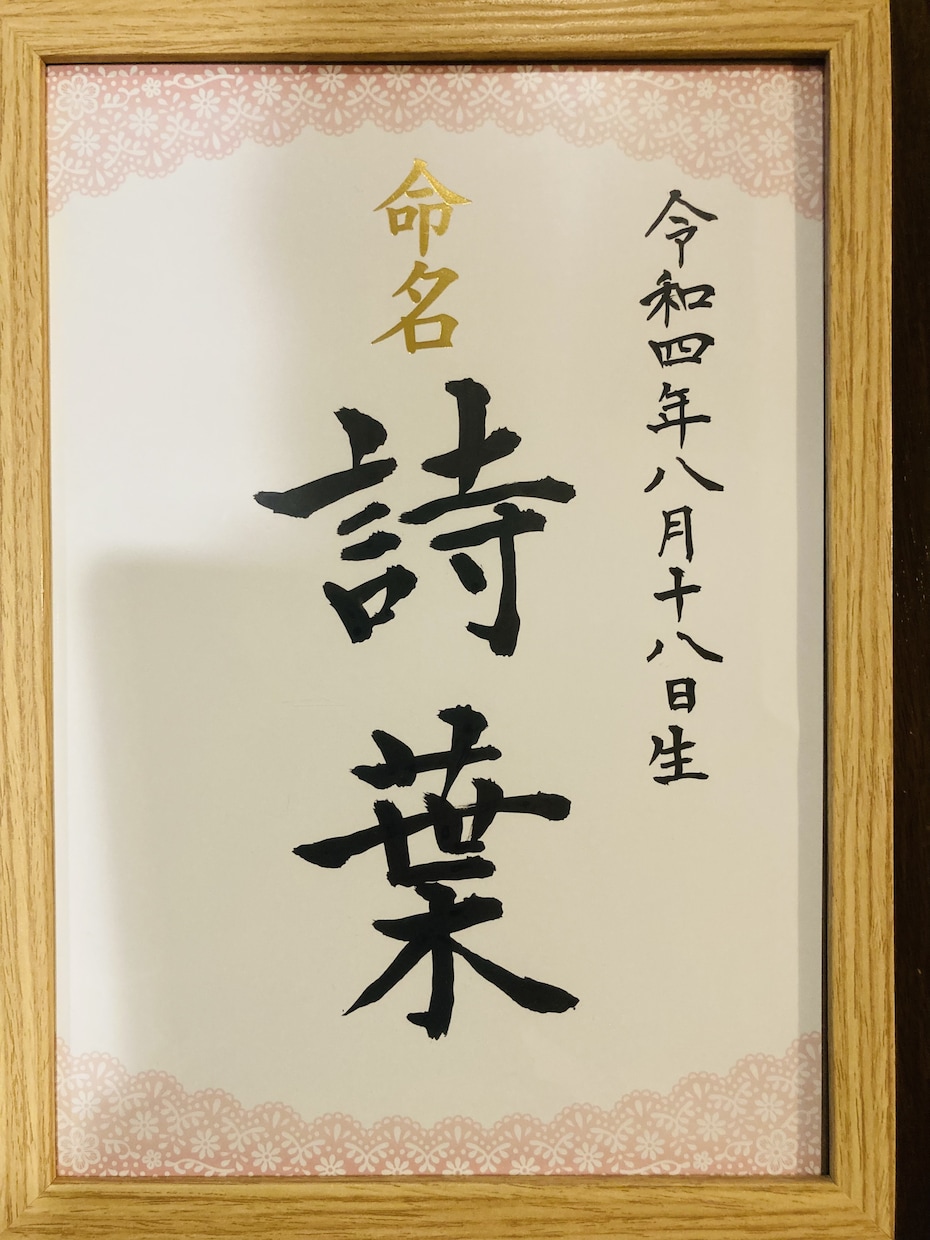 令和四年八月十八日生
命名
詩葉